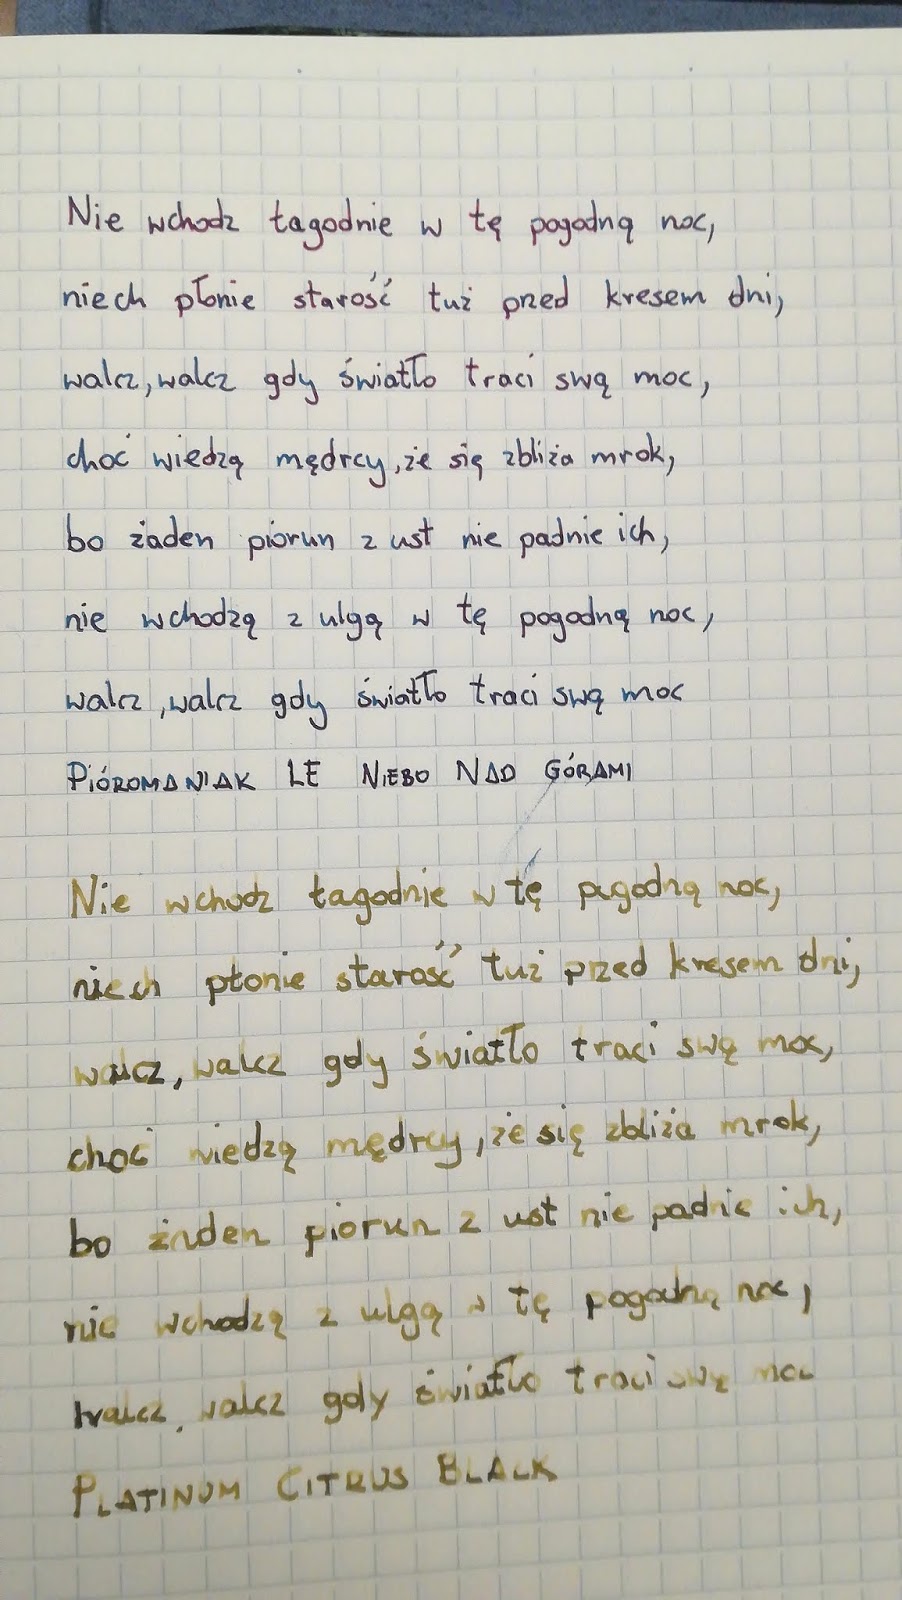 Nie wchodz łagodnie w tę pogodną noc,
niech płonie starość tuż przed kresem dni,
walcz, walcz gdy światło traci swą moc,
choć wiedzą mędrcy, że się zbliża mrok,
bo żaden piorun z ust nie padnie ich,
nie wchodzą z ulgą w tę pogodną noc,
walcz, walcz gdy światło traci swą moc
PIÓROMANIAK LE NIEBO NAD GÓRAMI
Nie wchodz łagodnie w tę pogodną noc,
niech płonie starość tuż przed kresem dni,
walcz, walcz gdy światło traci swą moc,
choć wiedzą mędrcy, że się zbliża mrok,
bo żaden piorun z ust nie padnie ich,
nie wchodzą z ulgą w tę pogodną noc,
walcz, walcz gdy światło traci swą moc
PLATINUM CITRUS BLACK